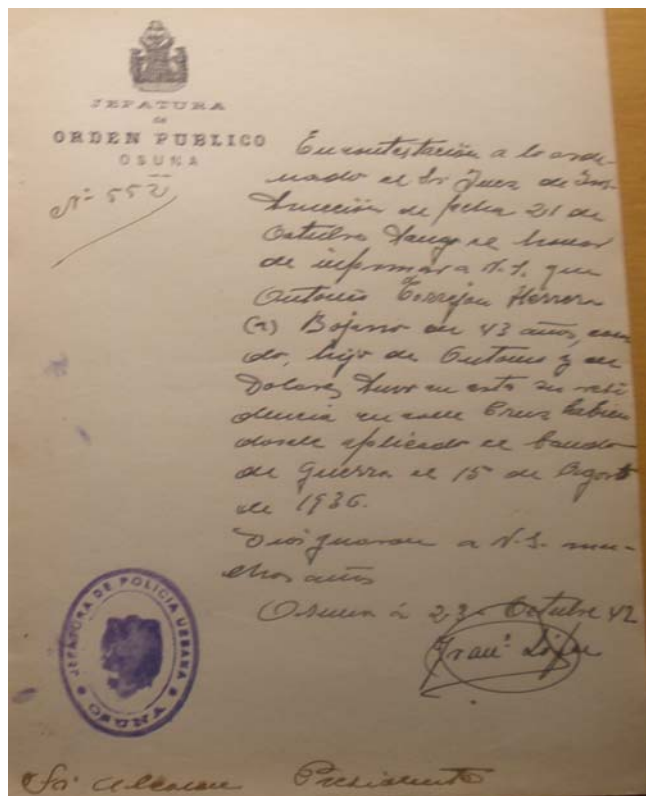 JEFATURA
de
ORDEN PUBLICO
OSUNA
Nº 552
En contestación a lo orde-
nado el Sr Juez de Ins-
trucción de fecha 21 de
Octubre tengo el honor
de informar a V.S. que
Antonio Torrejon Herrera
(a) Bojeno de 43 años, casa
do, hijo de Antonio y de
Dolores, tuvo en esta su resi
dencia en calle Cruz habien
dosele aplicado el bando
de guerra el 15 de Agosto
de 1936.
Dios guarde a V.S. mu-
chos años
Osuna a 23 Octubre 42
Franº López
JEFATURA DE POLICIA URBANA
OSUNA
Sr Alcalde Presidente